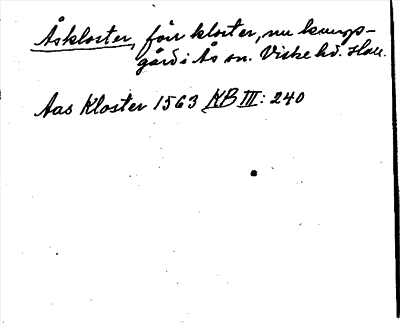 Åskloster, förr kloster, nu kungs-
gård i Ås sn. Viske hd. Hall.
Aas Kloster 1563 KB III: 240